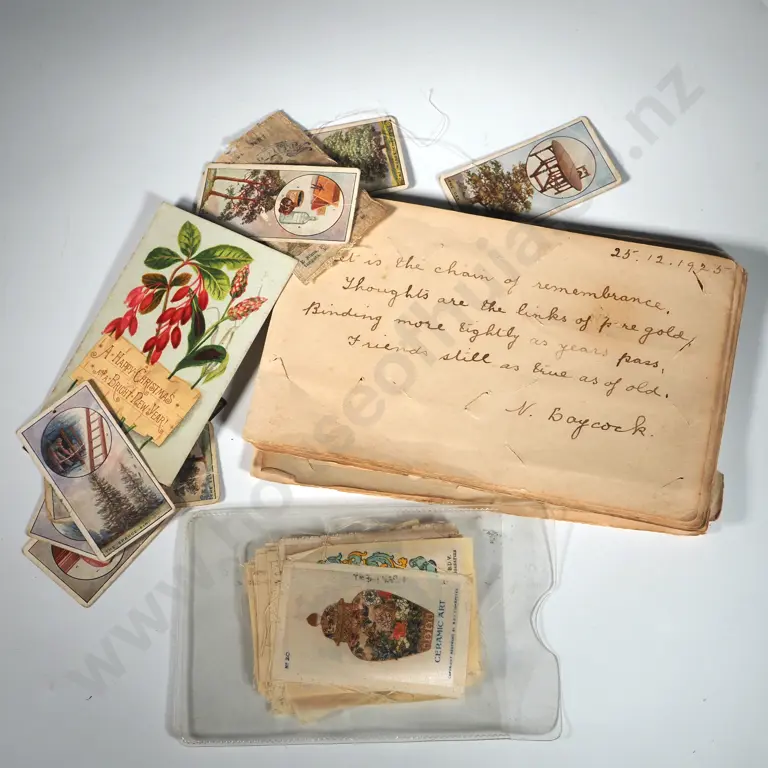 25.12.1925
It is the chain of remembrance.
Thoughts are the links of pure gold,
Binding more tightly as years pass,
Friends still as true as of old.
N. Baycock.
A HAPPY CHRISTMAS
A BRIGHT NEW YEAR!
CERAMIC ART
Nº 20
www.houseofhuia.co.nz